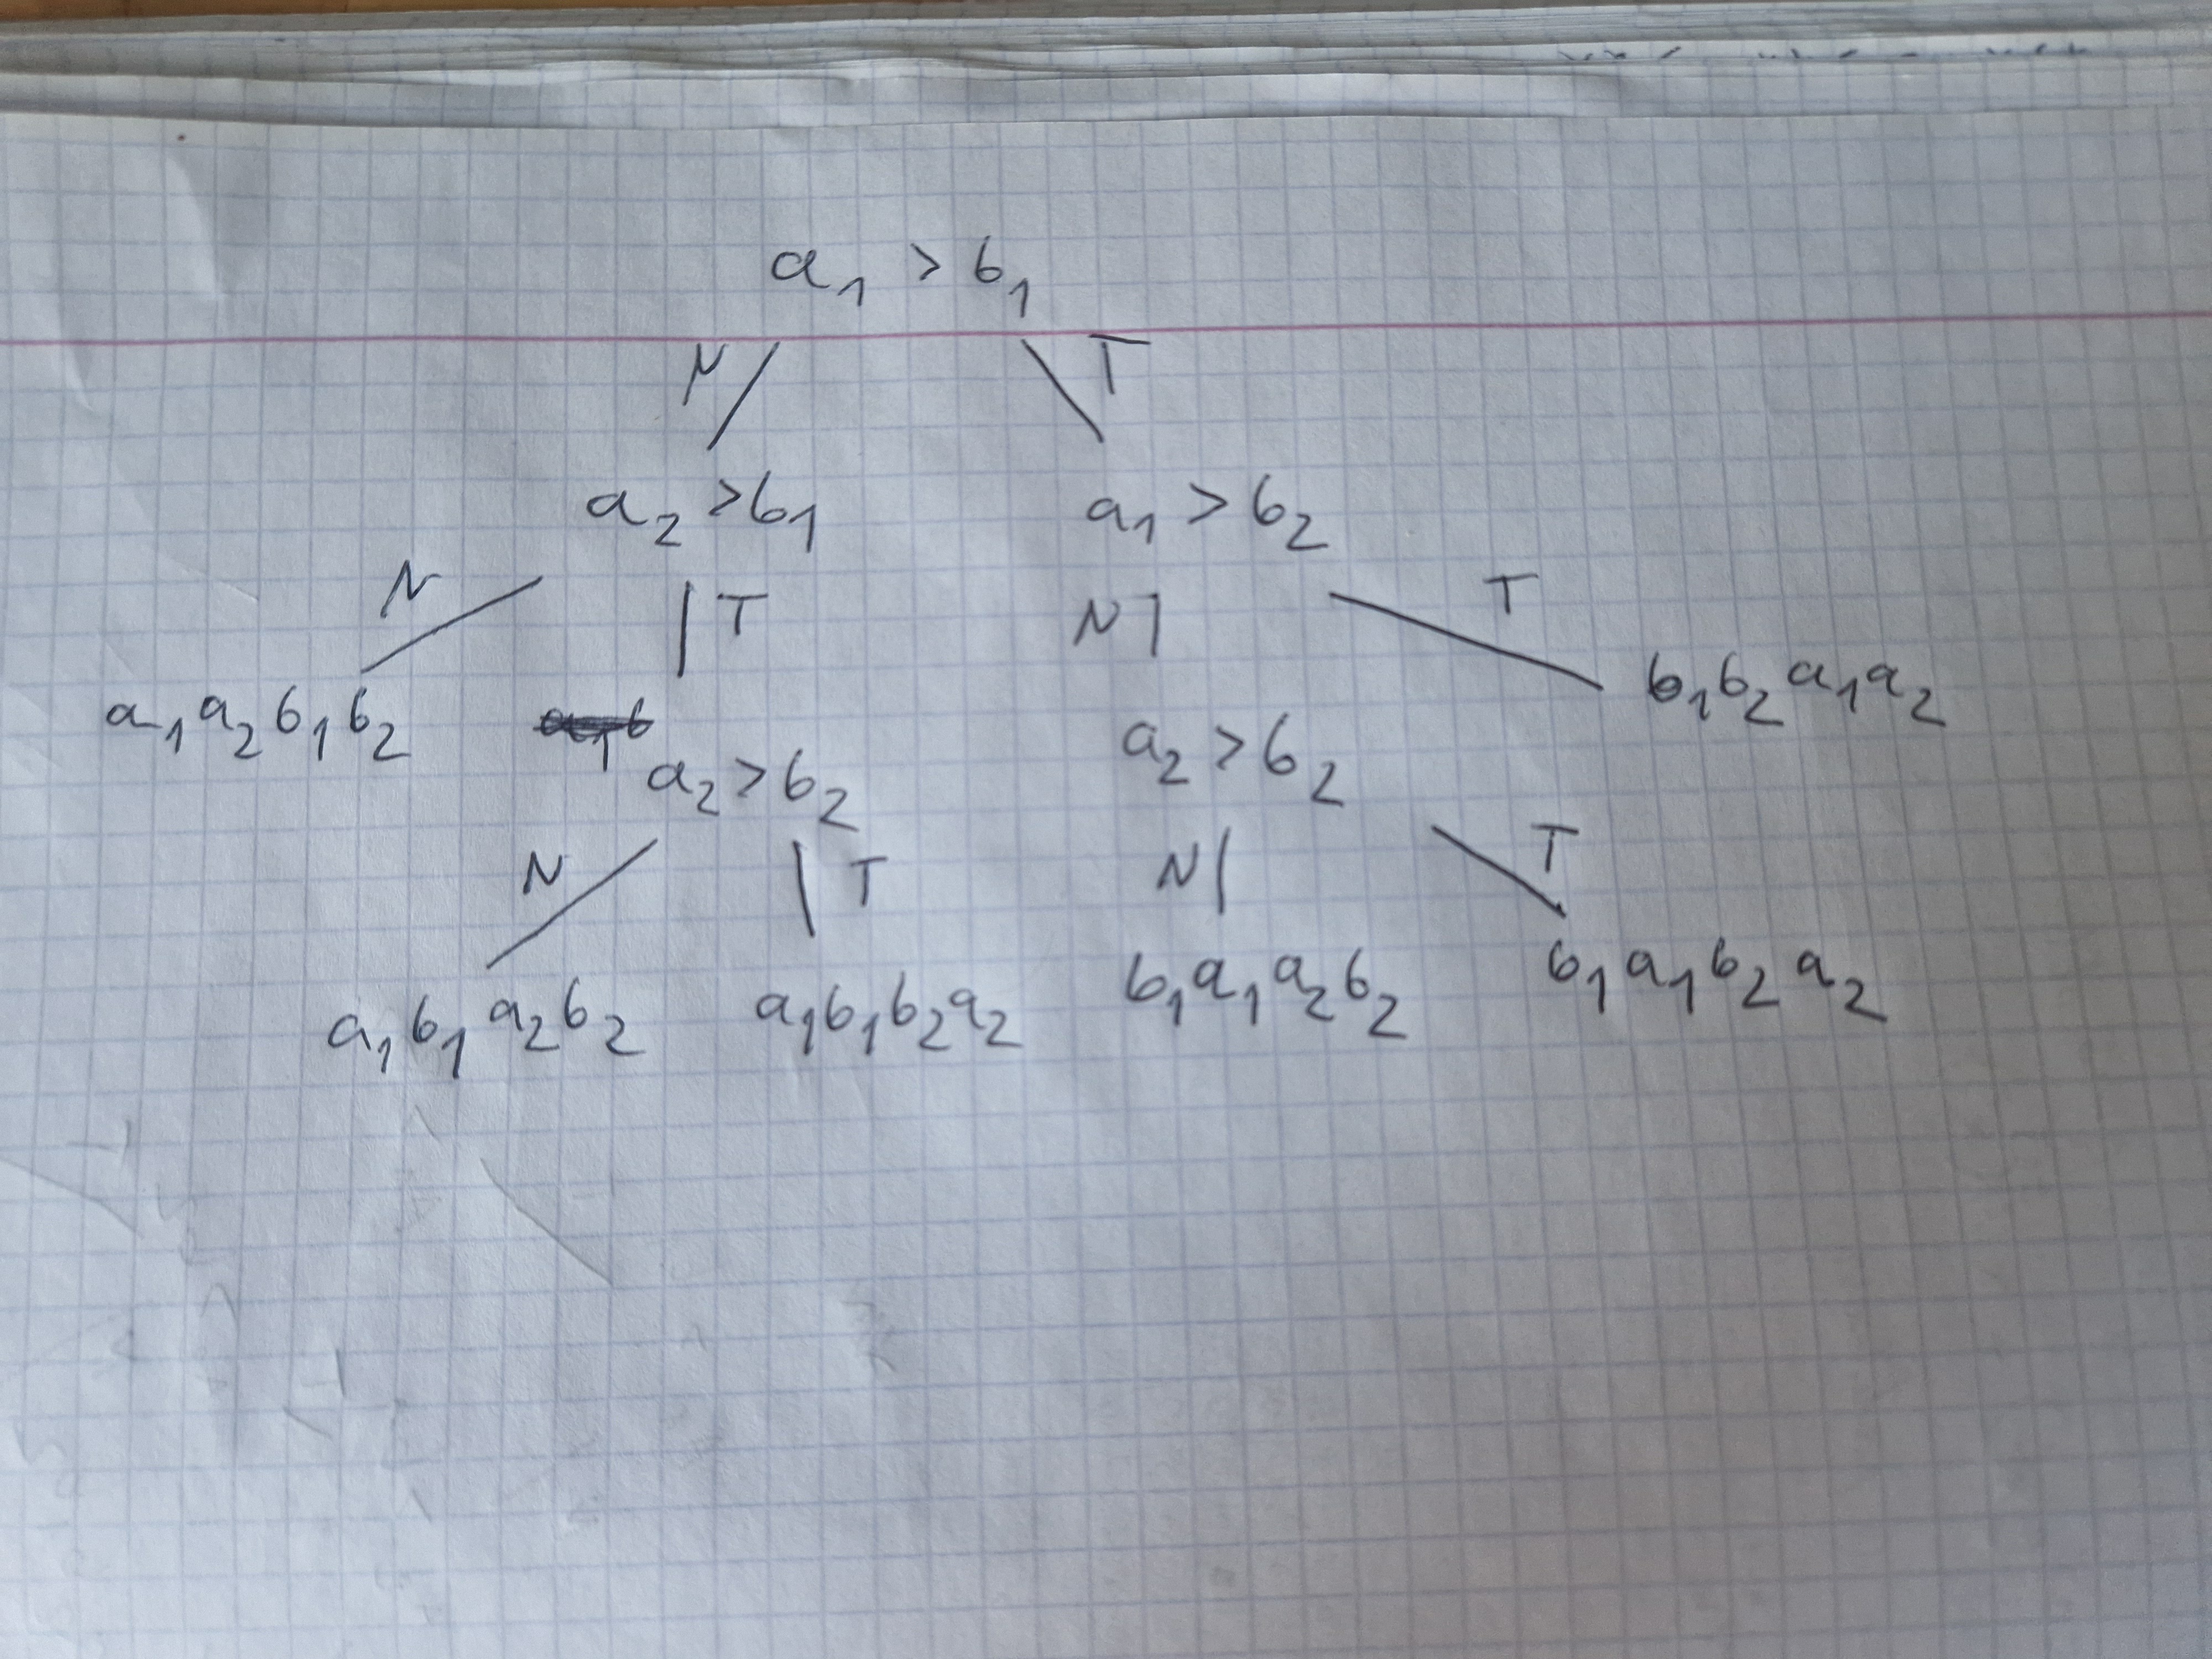 a₁ > b₁
N T
a₂ > b₁ a₁ > b₂
N T N T
a₁a₂b₁b₂ a₂ > b₂ a₂ > b₂ b₁b₂a₁a₂
N T N T
a₁b₁a₂b₂ a₁b₁b₂a₂ b₁a₁a₂b₂ b₁a₁b₂a₂